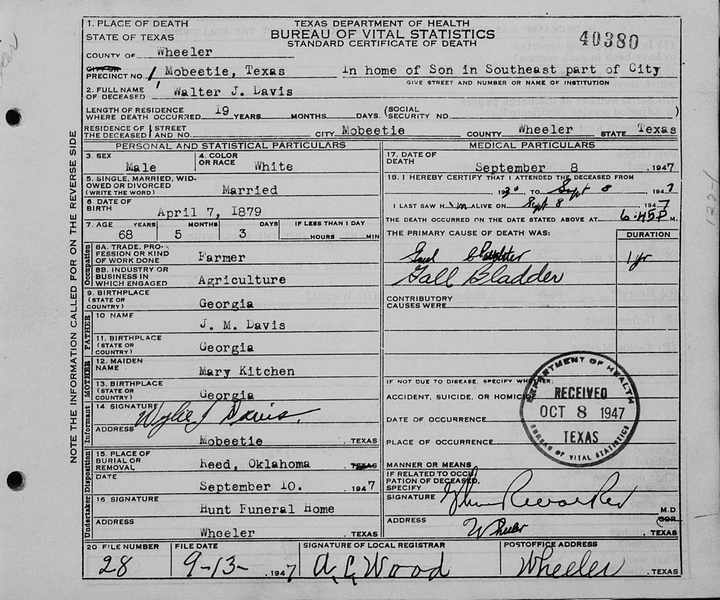 1. PLACE OF DEATH
STATE OF TEXAS
TEXAS DEPARTMENT OF HEALTH
BUREAU OF VITAL STATISTICS
STANDARD CERTIFICATE OF DEATH
40380
COUNTY OF Wheeler
CITY OR
PRECINCT NO. 1 Mobeetie, Texas In home of Son in Southeast part of City
GIVE STREET AND NUMBER OR NAME OF INSTITUTION
2. FULL NAME
OF DECEASED Walter J. Davis
LENGTH OF RESIDENCE
WHERE DEATH OCCURRED 19 YEARS MONTHS DAYS (SOCIAL
SECURITY NO.
RESIDENCE OF STREET
THE DECEASED AND NO. CITY Mobeetie COUNTY Wheeler STATE Texas
PERSONAL AND STATISTICAL PARTICULARS
3. SEX Male
4. COLOR
OR RACE White
5. SINGLE, MARRIED, WID-
OWED OR DIVORCED
(WRITE THE WORD) Married
6. DATE OF
BIRTH April 7, 1879
7. AGE YEARS MONTHS DAYS IF LESS THAN 1 DAY
68 5 3 HOURS MIN
Occupation
8A. TRADE, PRO-
FESSION OR KIND
OF WORK DONE Farmer
8B. INDUSTRY OR
BUSINESS IN
WHICH ENGAGED Agriculture
9. BIRTHPLACE
(STATE OR
COUNTRY) Georgia
FATHER
10 NAME J. M. Davis
11. BIRTHPLACE
(STATE OR
COUNTRY) Georgia
MOTHER
12. MAIDEN
NAME Mary Kitchen
13. BIRTHPLACE
(STATE OR
COUNTRY) Georgia
Informant
14 SIGNATURE Wylie J Davis.
ADDRESS Mobeetie , TEXAS
Disposition
15. PLACE OF
BURIAL OR
REMOVAL Reed, Oklahoma TEXAS
DATE September 10. 1947
Undertaker
16 SIGNATURE Hunt Funeral Home
ADDRESS Wheeler , TEXAS
MEDICAL PARTICULARS
17. DATE OF
DEATH September 8 , 1947
18. I HEREBY CERTIFY THAT I ATTENDED THE DECEASED FROM
TO Sept 8 1947
I LAST SAW him ALIVE ON Sept 8 1947
THE DEATH OCCURRED ON THE DATE STATED ABOVE AT 6:45P M.
THE PRIMARY CAUSE OF DEATH WAS: DURATION
1 yr
Gall Bladder
CONTRIBUTORY
CAUSES WERE:
IF NOT DUE TO DISEASE, SPECIFY WHETHER:
ACCIDENT, SUICIDE, OR HOMICIDE
DATE OF OCCURRENCE
PLACE OF OCCURRENCE
MANNER OR MEANS
IF RELATED TO OCCU
PATION OF DECEASED,
SPECIFY
SIGNATURE M.D
ADDRESS Wheeler , TEXAS
DEPARTMENT OF HEALTH
RECEIVED
OCT 8 1947
TEXAS
BUREAU OF VITAL STATISTICS
20 FILE NUMBER FILE DATE SIGNATURE OF LOCAL REGISTRAR POSTOFFICE ADDRESS
28 9-13- , 1947 A. C. Wood Wheeler , TEXAS
NOTE THE INFORMATION CALLED FOR ON THE REVERSE SIDE